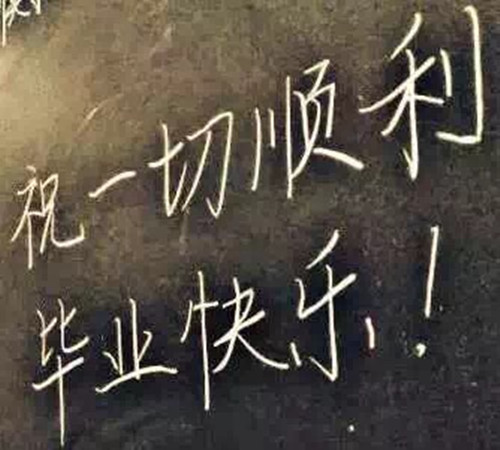 祝一切顺利
毕业快乐!